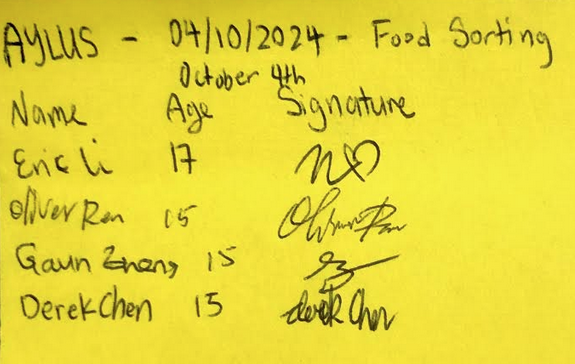 AYLUS - 04/10/2024 - Food Sorting
October 4th
Name Age Signature
Eric Li 17
Oliver Ren 15 Oliver Ren
Gavin Zhang 15
Derek Chen 15 derek Chen